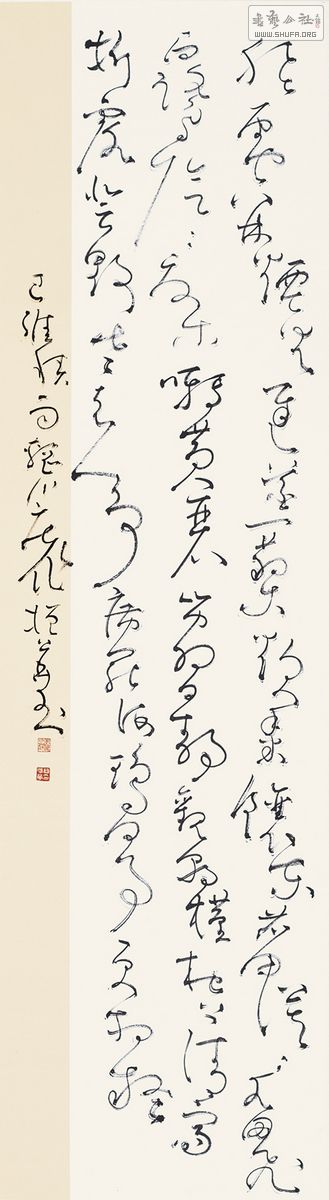 書藝公社
WWW.SHUFA.ORG
積雨空林煙火遲蒸藜炊黍餉東菑漠漠水田飛
白鷺陰陰夏木囀黃鸝山中習靜觀朝槿松下清齋
折露葵野老與人爭席罷海鷗何事更相疑
王維積雨輞川莊作